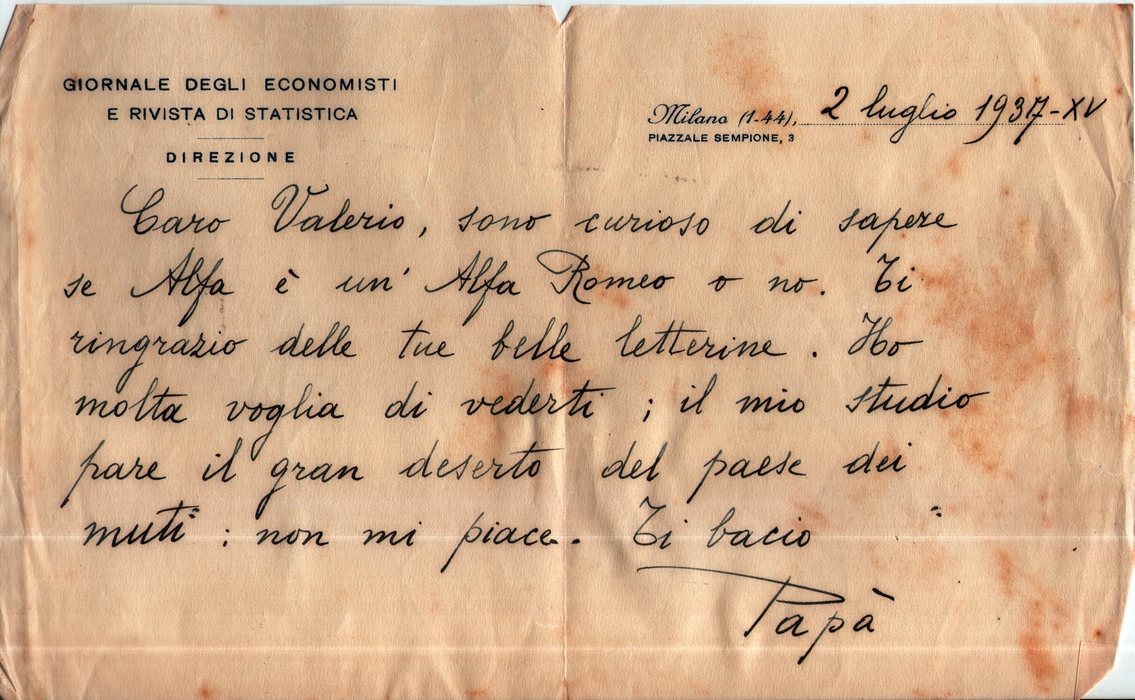 GIORNALE DEGLI ECONOMISTI
E RIVISTA DI STATISTICA
DIREZIONE
Milano (1-44), 2 luglio 1937-XV
PIAZZALE SEMPIONE, 3
Caro Valerio, sono curioso di sapere
se Alfa è un' Alfa Romeo o no. Ti
ringrazio delle tue belle letterine. Ho
molta voglia di vederti; il mio studio
pare il gran deserto del paese dei
muti: non mi piace. Ti bacio
Papà